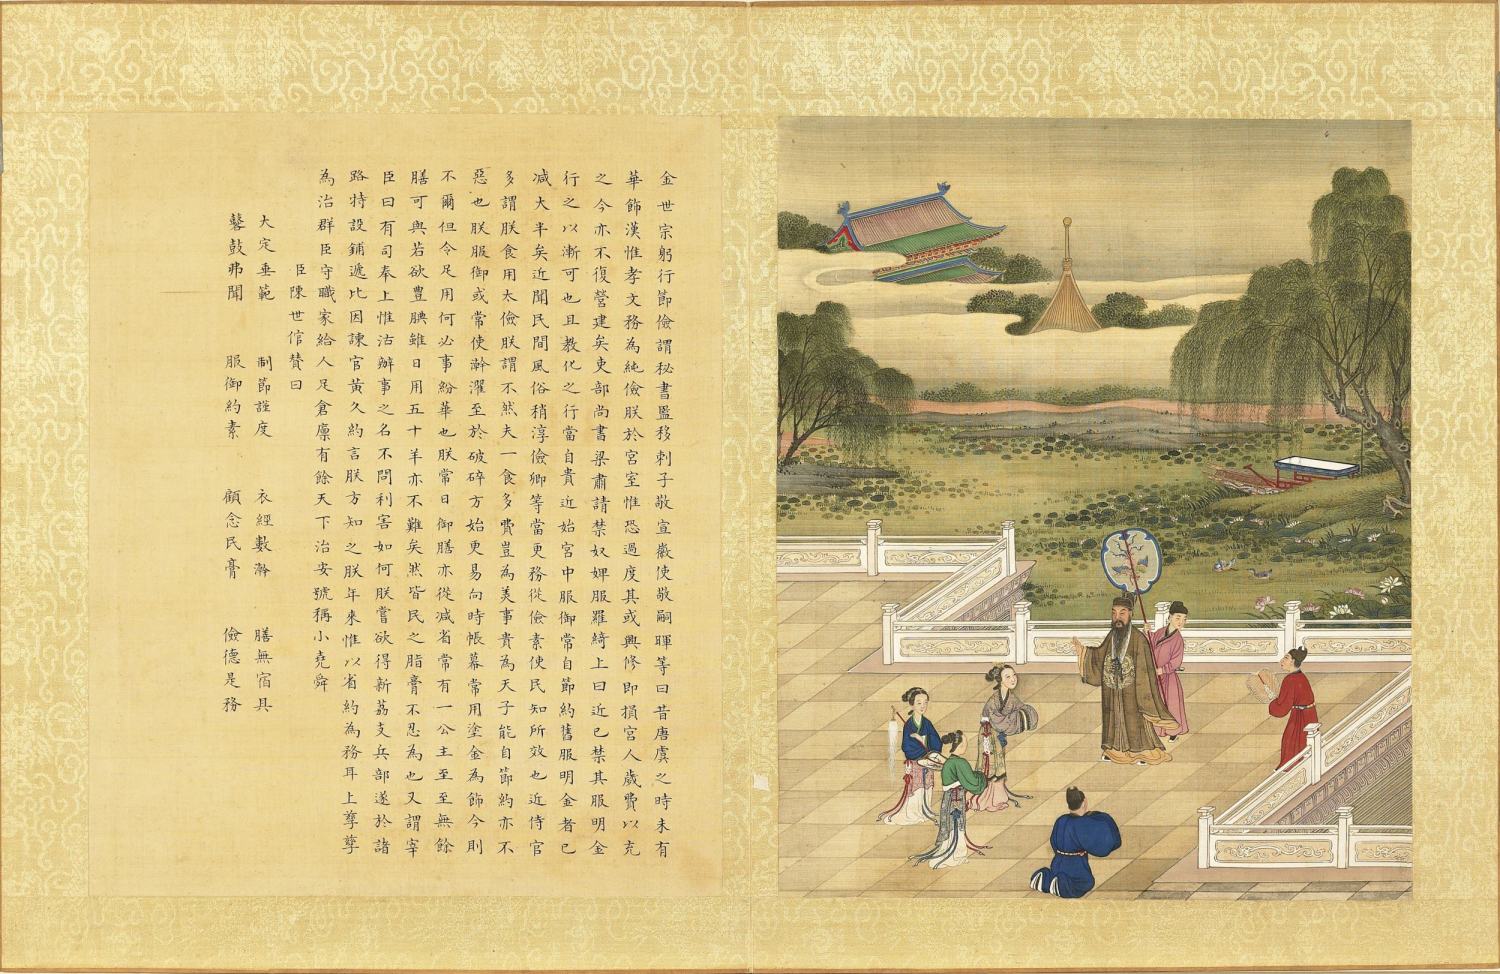 金世宗躬行節儉謂秘書監移刺子敬宣徽使敬嗣暉等曰昔唐虞之時未有
華飾漢惟孝文務為純儉朕於宮室惟恐過度其或興修即損宮人歲費以充
之今亦不復營建矣吏部尚書梁肅請禁奴婢服羅綺上曰近已禁其服明金
行之以漸可也且教化之行當自貴近始宮中服御常自節約舊服明金者已
減大半矣近聞民間風俗稍淳儉卿等當更務從儉素使民知所效也近侍官
多謂朕食用太儉朕謂不然夫一食多費豈為美事貴為天子能自節約亦不
惡也朕服御或常使澣濯至於破碎方始更易向時帳幕常用塗金為飾今則
不爾但令足用何必事紛華也朕常日御膳亦從減省常有一公主至至無餘
膳可與若欲豐腆雖日用五十羊亦不難矣然皆民之脂膏不忍為也又謂宰
臣曰有司奉上惟沽辦事之名不問利害如何朕嘗欲得新荔支兵部遂於諸
路特設鋪遞比因諫官黃久約言朕方知之朕年來惟以省約為務耳上孳孳
為治群臣守職家給人足倉廩有餘天下治安號稱小堯舜
臣陳世倌贊曰
大定垂範 制節謹度 衣經數澣 膳無宿具
鼛鼓弗聞 服御約素 顧念民膏 儉德是務